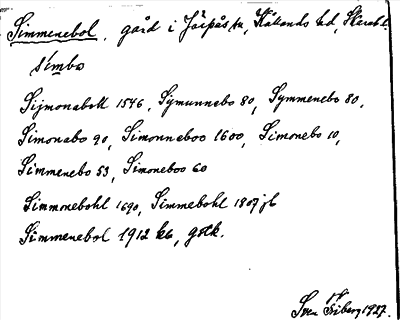 Simmenebol, gård i Järpås sn, Kållands hd, Skarabl.
simbo
Sijmonaboll 1546, Symunnebo 80, Symmenebo 80,
Simonabo 90, Simonneboo 1600, Simonebo 10,
Simmenebo 53, Simoneboo 60
Simmonebohl 1690, Simmebohl 1807 jb
Simmenebol 1912 kb, gotk.
Sven Friberg 1927.